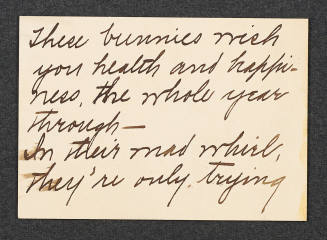 These bunnies wish
you health and happi-
ness, the whole year
through—
In their mad whirl,
they're only trying